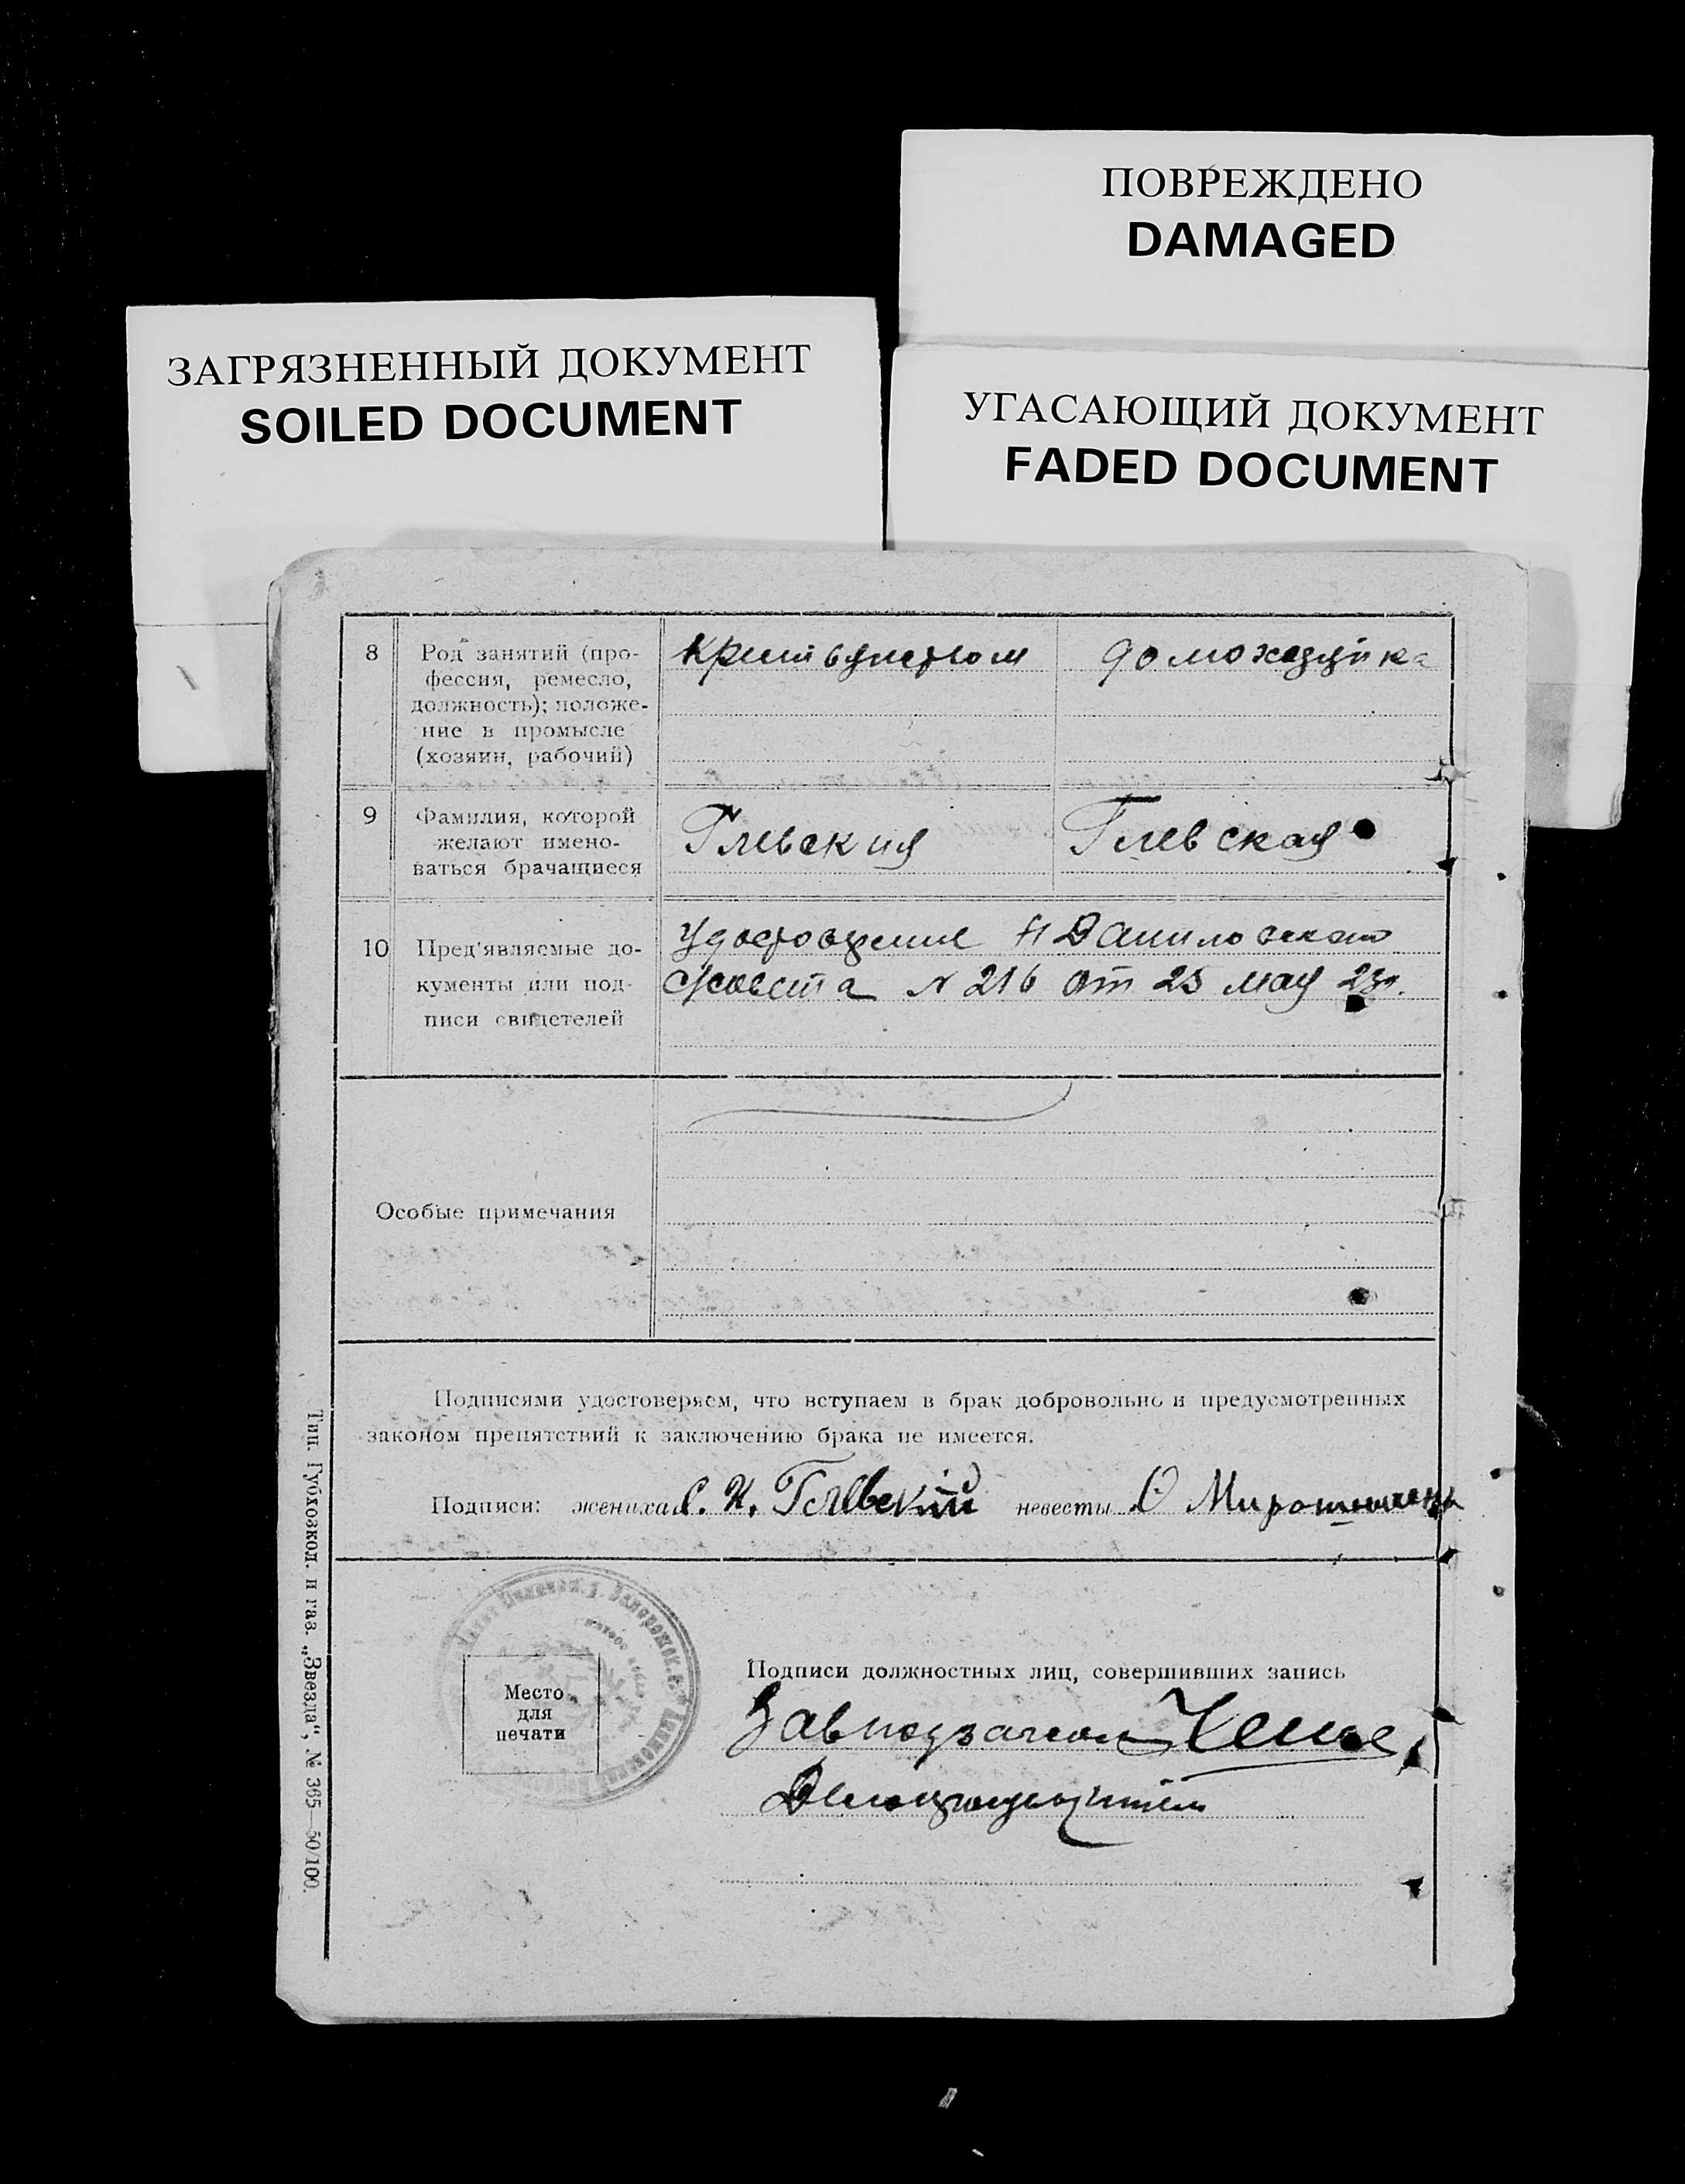 ПОВРЕЖДЕНО
DAMAGED
ЗАГРЯЗНЕННЫЙ ДОКУМЕНТ
SOILED DOCUMENT
УГАСАЮЩИЙ ДОКУМЕНТ
FADED DOCUMENT
8 Род занятий (про-
фессия, ремесло,
должность); положе-
ние в промысле
(хозяин, рабочий)
домохазяйка
9 Фамилия, которой
желают имено-
ваться брачащиеся
Глевский Глевская
10 Пред'являемые до-
кументы или под-
писи свидетелей
Удостоверение Н Даниловского
с/совета № 216 от 25 мая 23г.
Особые примечания
Подписями удостоверяем, что вступаем в брак добровольно и предусмотренных
законом препятствий к заключению брака не имеется.
Подписи: жениха С. И. Глевский невесты О Мирошниченк
Место
для
печати
Подписи должностных лиц, совершивших запись
Завподзагсом
Делопроизводитель
Тип. Губхозкол. и газ. „Звезда“, № 365—50/100.